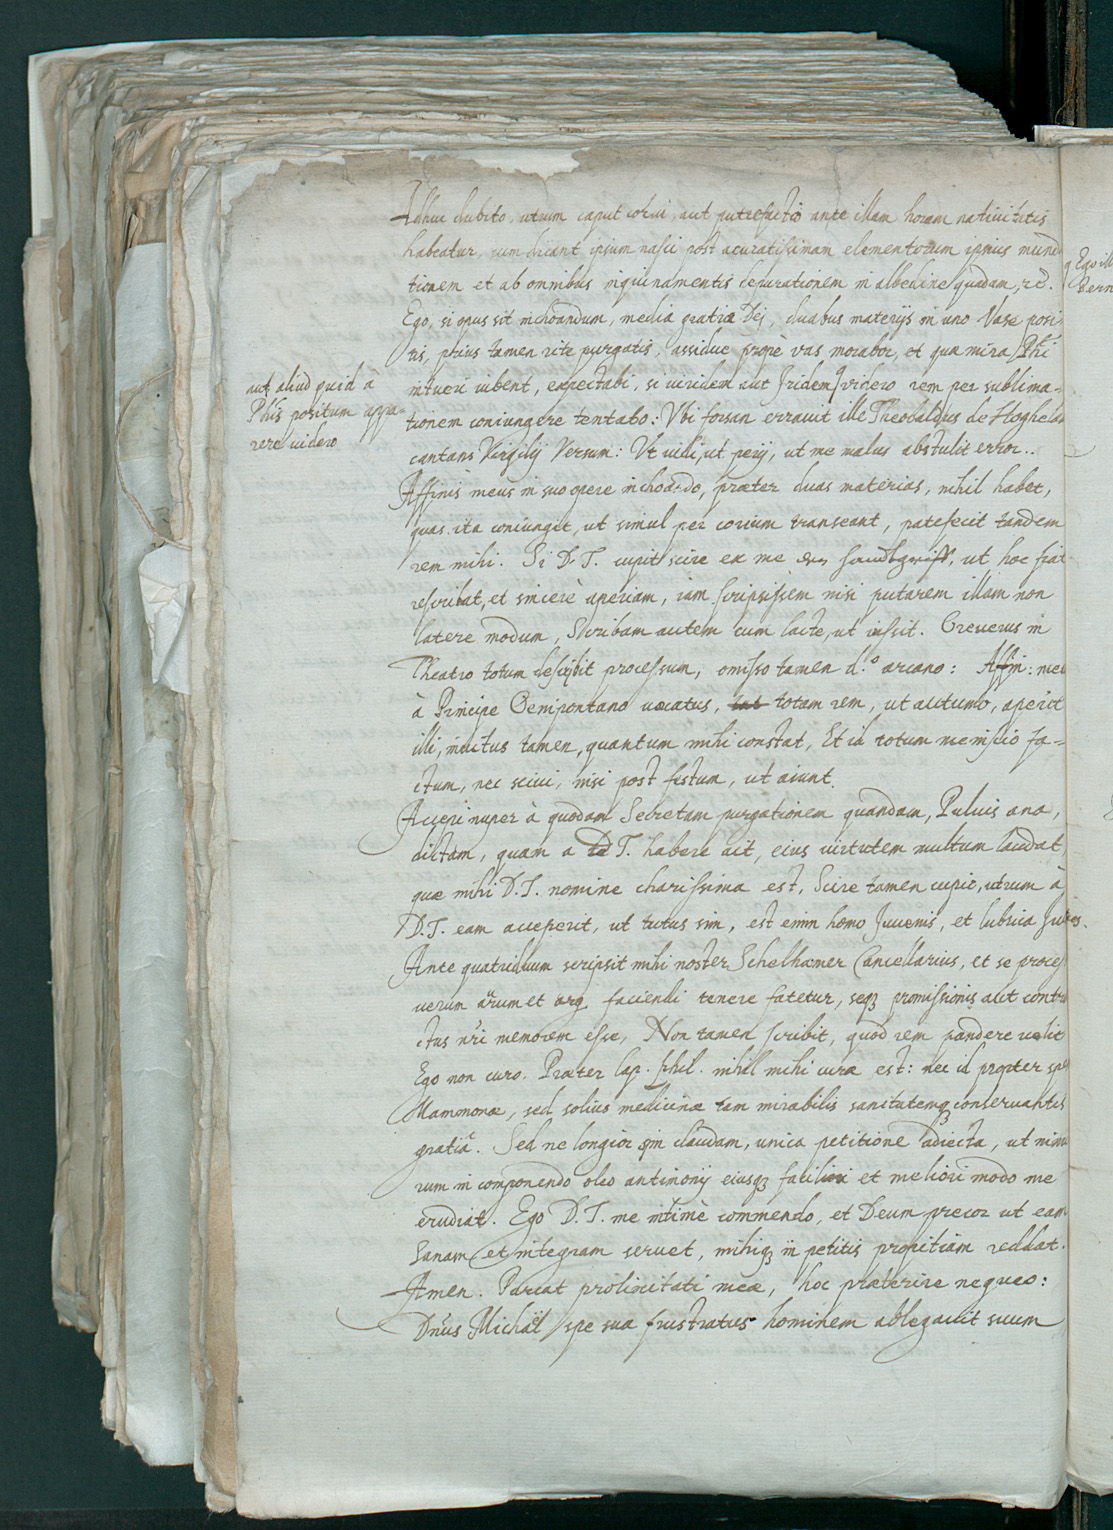 Adhuc dubito, utrum caput corui, aut putrefactio ante illam horam natiuitatis
habeatur, cum dicant ipsum nasci post acuratissimam elementorum ipsius mund
tionem et ab omnibus inquinamentis depurationem in albedine quadam, rc.
Ego, si opus sit inchoandum, media gratia Dei, duabus materijs in uno Vase posi
tis, prius tamen rite purgatis, assidue propè vas morabor, et quæ mira Phi
aut aliud quid a
Phis positum appa-
rere uidero
intueri iubent, expectabi, si uiridem aut Iridem uidero rem per sublima-
tionem coniungere tentabo: Vbi forsan errauit ille Theobaldus de Hoghela
cantans Virgilij Versum: Vt uidi, ut perij, ut me malus abstulit error..
Affinis meus in suo opere inchoando, præter duas materias, nihil habet,
quas ita coniungit, ut simul per corium transeant, patefecit tandem
rem mihi. Si D. T. cupit scire ex me den handtgriff, ut hoc fiat
rescribat, et sincerè aperiam, iam scripsissem nisi putarem illam non
latere modum, Scribam autem cum lacte, ut iussit. Beuerus in
Theatro totum describit processum, omisso tamen d.º arcano: Affin: meu
à Principe Oenipontano uocatus, totam rem, ut autumo, aperit
illi, inuitus tamen, quantum mihi constat, Et id totum me inscio fa-
ctum, nec sciui, nisi post festum, ut aiunt.
Accepi nuper à quodam Secretam purgationem quandam, Puluis ana,
dictam, quam a D T. habere ait, eius uirtutem multum laudat,
quæ mihi D. T. nomine charissima est, Scire tamen cupio, utrum à
D. T. eam acceperit, ut tutus sim, est enim homo Iuuenis, et lubrica
Ante quatriduum scripsit mihi noster Schelhamer Cancellarius, et se proces
uerum aurum et arg faciendi tenere fatetur, seq3 promissionis aut contra
ctus nri memorem esse, Non tamen scribit, quod rem pandere uelit
Ego non curo. Præter lap. phil. nihil mihi curæ est: nec id propter spe
Mammonæ, sed solius medicinæ tam mirabilis sanitatemq3 conseruantis
gratia. Sed ne longior sim claudam, unica petitione adiecta, ut nimi
rum in componendo oleo antimonij eiusq3 faciliori et meliori modo me
erudiat. Ego D. T. me intimè commendo, et Deum precor ut eam
Sanam et integram seruet, mihiq3 in petitis propitiam reddat.
Amen. Parcat prolixitati meæ, hoc præterire nequeo:
Dnus Michäel spe sua frustratus hominem ablegauit suum
Ego ill
Bern